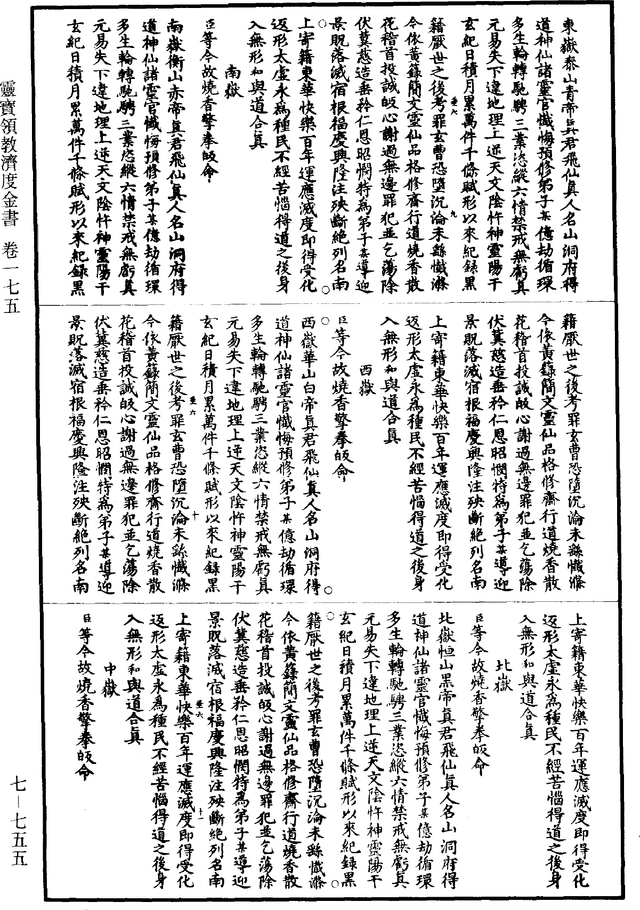 東嶽泰山青帝真君飛仙真人名山洞府得
道神仙諸靈官懺悔預修弟子某億劫循環
多生輪轉馳騁三業恣縱六情禁戒無虧真
元易失下違地理上逆天文陰忤神靈陽干
玄紀日積月累萬件千條賦形以來紀錄黑
籍厭世之後考罪玄曹恐墮沉淪未繇懺滌
今依黃籙簡文靈仙品格修齋行道燒香散
花稽首投誠皈心謝過無邊罪犯並乞蕩除
伏冀慈造垂矜仁恩昭憫特為弟子某導迎
景貺落滅宿根福慶興隆注殃斷絕列名南
上寄籍東華快樂百年運應滅度即得受化
返形太虛永為種民不經苦惱得道之後身
入無形和與道合真
南嶽
臣等今故燒香擎拳皈命
南嶽衡山赤帝真君飛仙真人名山洞府得
道神仙諸靈官懺悔預修弟子某億劫循環
多生輪轉馳騁三業恣縱六情禁戒無虧真
元易失下違地理上逆天文陰忤神靈陽干
玄紀日積月累萬件千條賦形以來紀錄黑
籍厭世之後考罪玄曹恐墮沉淪未繇懺滌
今依黃籙簡文靈仙品格修齋行道燒香散
花稽首投誠皈心謝過無邊罪犯並乞蕩除
伏冀慈造垂矜仁恩昭憫特為弟子某導迎
景貺落滅宿根福慶興隆注殃斷絕列名南
上寄籍東華快樂百年運應滅度即得受化
返形太虛永為種民不經苦惱得道之後身
入無形和與道合真
西嶽
臣等今故燒香擎拳皈命
西嶽華山白帝真君飛仙真人名山洞府得
道神仙諸靈官懺悔預修弟子某億劫循環
多生輪轉馳騁三業恣縱六情禁戒無虧真
元易失下違地理上逆天文陰忤神靈陽干
玄紀日積月累萬件千條賦形以來紀錄黑
籍厭世之後考罪玄曹恐墮沉淪未繇懺滌
今依黃籙簡文靈仙品格修齋行道燒香散
花稽首投誠皈心謝過無邊罪犯並乞蕩除
伏冀慈造垂矜仁恩昭憫特為弟子某導迎
景貺落滅宿根福慶興隆注殃斷絕列名南
上寄籍東華快樂百年運應滅度即得受化
返形太虛永為種民不經苦惱得道之後身
入無形和與道合真
北嶽
臣等今故燒香擎拳皈命
北嶽恒山黑帝真君飛仙真人名山洞府得
道神仙諸靈官懺悔預修弟子某億劫循環
多生輪轉馳騁三業恣縱六情禁戒無虧真
元易失下違地理上逆天文陰忤神靈陽干
玄紀日積月累萬件千條賦形以來紀錄黑
籍厭世之後考罪玄曹恐墮沉淪未繇懺滌
今依黃籙簡文靈仙品格修齋行道燒香散
花稽首投誠皈心謝過無邊罪犯並乞蕩除
伏冀慈造垂矜仁恩昭憫特為弟子某導迎
景貺落滅宿根福慶興隆注殃斷絕列名南
上寄籍東華快樂百年運應滅度即得受化
返形太虛永為種民不經苦惱得道之後身
入無形和與道合真
中嶽
臣等今故燒香擎拳皈命
靈寶領教濟度金書 卷一七五
七—七五五